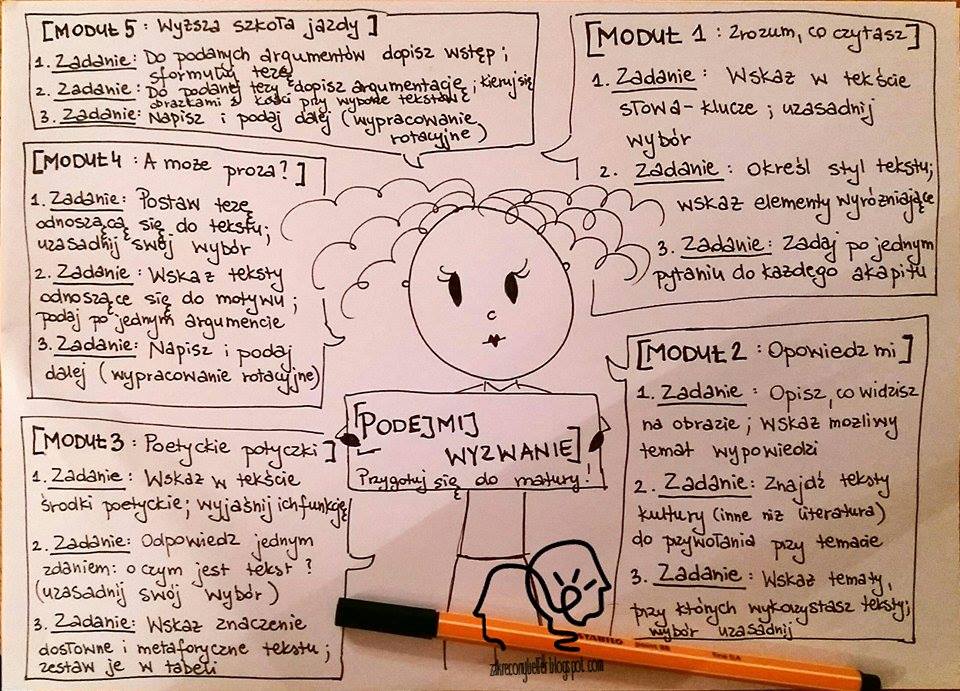 [MODUŁ 5 : Wyższa szkoła jazdy]
1. Zadanie: Do podanych argumentów dopisz wstęp ;
sformułuj tezę
2. Zadanie: Do podanej tezy dopisz argumentację ; kieruj się
obrazkami z kości przy wyborze tekstów
3. Zadanie: Napisz i podaj dalej (wypracowanie
rotacyjne)
[MODUŁ 1 : Zrozum, co czytasz]
1. Zadanie : Wskaż w tekście
słowa-klucze ; uzasadnij
wybór
2. Zadanie : Określ styl tekstu;
wskaż elementy wyróżniające
3. Zadanie: Zadaj po jednym
pytaniu do każdego akapitu
[MODUŁ 4 : A może proza?]
1. Zadanie: Postaw tezę
odnoszącą się do tekstu;
uzasadnij swój wybór
2. Zadanie : Wskaż teksty
odnoszące się do motywu ;
podaj po jednym argumencie
3. Zadanie: Napisz i podaj
dalej (wypracowanie rotacyjne)
[MODUŁ 2 : Opowiedz mi]
1. Zadanie : Opisz, co widzisz
na obrazie ; wskaż możliwy
temat wypowiedzi
2. Zadanie: Znajdź teksty
kultury (inne niż literatura)
do przywołania przy temacie
3. Zadanie : Wskaż tematy,
przy których wykorzystasz teksty;
wybór uzasadnij
[MODUŁ 3 : Poetyckie potyczki]
1. Zadanie : Wskaż w tekście
środki poetyckie; wyjaśnij ich funkcję
2. Zadanie: Odpowiedz jednym
zdaniem: o czym jest tekst ?
(uzasadnij swój wybór)
3. Zadanie: Wskaż znaczenie
dosłowne i metaforyczne tekstu ;
zestaw je w tabeli
[PODEJMIJ
WYZWANIE]
Przygotuj się do matury!
STABILO
point 88
fine 0,4
zakreconybelfer.blogspot.com